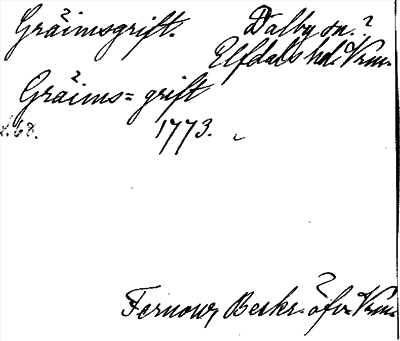 Gräimsgrift. Dalby sn.?
Elfdals hd. Vrm.
Gräims=grift
s. 68. 1773.
Fernow, Beskr. öfv. Vrm.